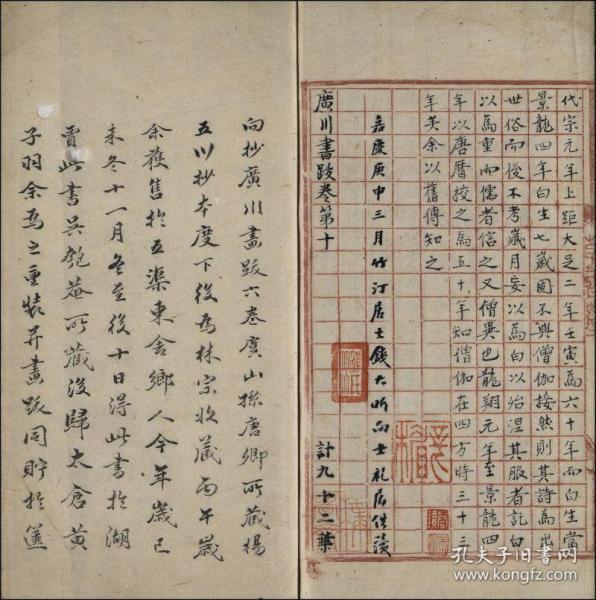 代宗元年上距大足二年壬寅為六十年而白生當
景龍四年白生七歲固不與僧伽接然則其詩為出
世俗而後不考歲月妄以為白以治涅其服者託白
以為重而儒者信之又僧異也龍翔元年至景龍四
年以唐曆校之為五十年知僧伽在四方時三十三
年矣余以舊傳知之
嘉慶庚申三月竹汀居士錢大昕向士礼居借讀
廣川書跋卷第十
計九十二葉
向抄廣川畫跋六卷虞山孫唐卿所藏楊
五川抄本度下後為林宗收藏丙午歲
余獲售於五渠東舍鄉人今年歲已
未冬十一月冬至後十日得此書於湖
賈此書吳匏菴所藏後歸太倉黃
子羽余為之重裝并畫跋同貯於篋
孔夫子旧书网
www.kongfz.com